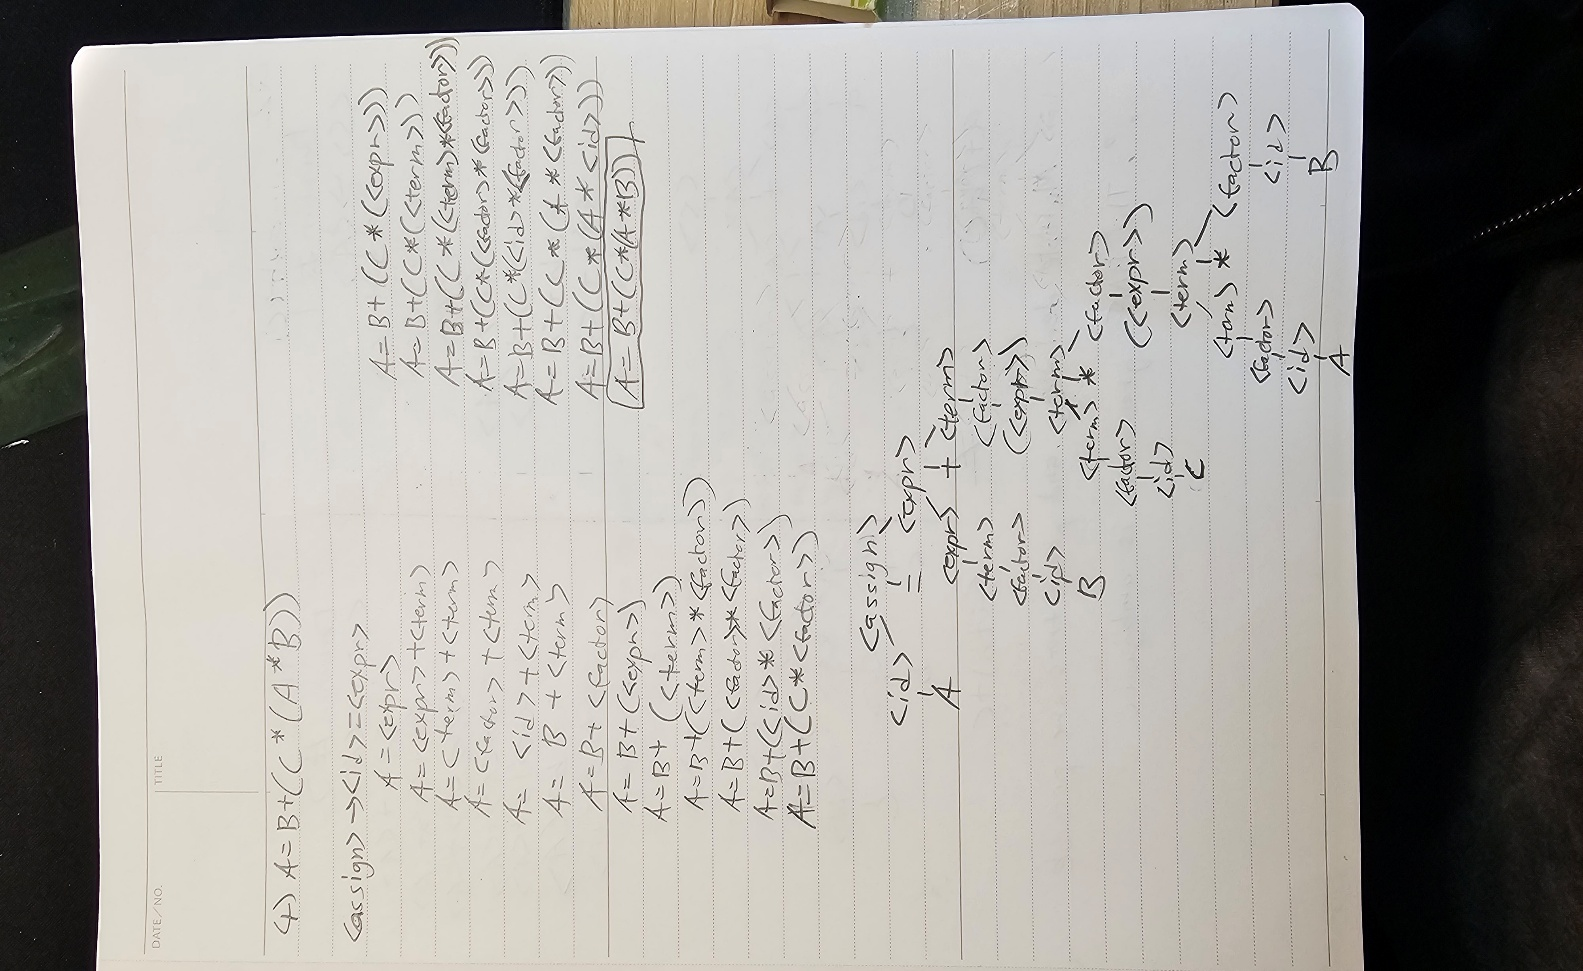 DATE/NO.
TITLE
4) A=B+(C*(A*B))
<assign>→<id>=<expr>
A=<expr>
A=<expr>+<term>
A=<term>+<term>
A=<factor>+<term>
A=<id>+<term>
A=B+<term>
A=B+<factor>
A=B+(<expr>)
A=B+(<term>)
A=B+(<term>*<factor>)
A=B+(<factor>*<factor>)
A=B+(<id>*<factor>)
A=B+(C*<factor>)
A=B+(C*(<expr>))
A=B+(C*(<term>))
A=B+(C*(<term>*<factor>))
A=B+(C*(<factor>*<factor>))
A=B+(C*(<id>*<factor>))
A=B+(C*(A*<factor>))
A=B+(C*(A*<id>))
A=B+(C*(A*B))
<assign>
<id> = <expr>
A <expr> + <term>
<term> <factor>
<factor> (<expr>)
<id> <term>
B <term> * <factor>
<factor> (<expr>)
<id> <term>
C <term> * <factor>
<factor> <id>
<id> B
A